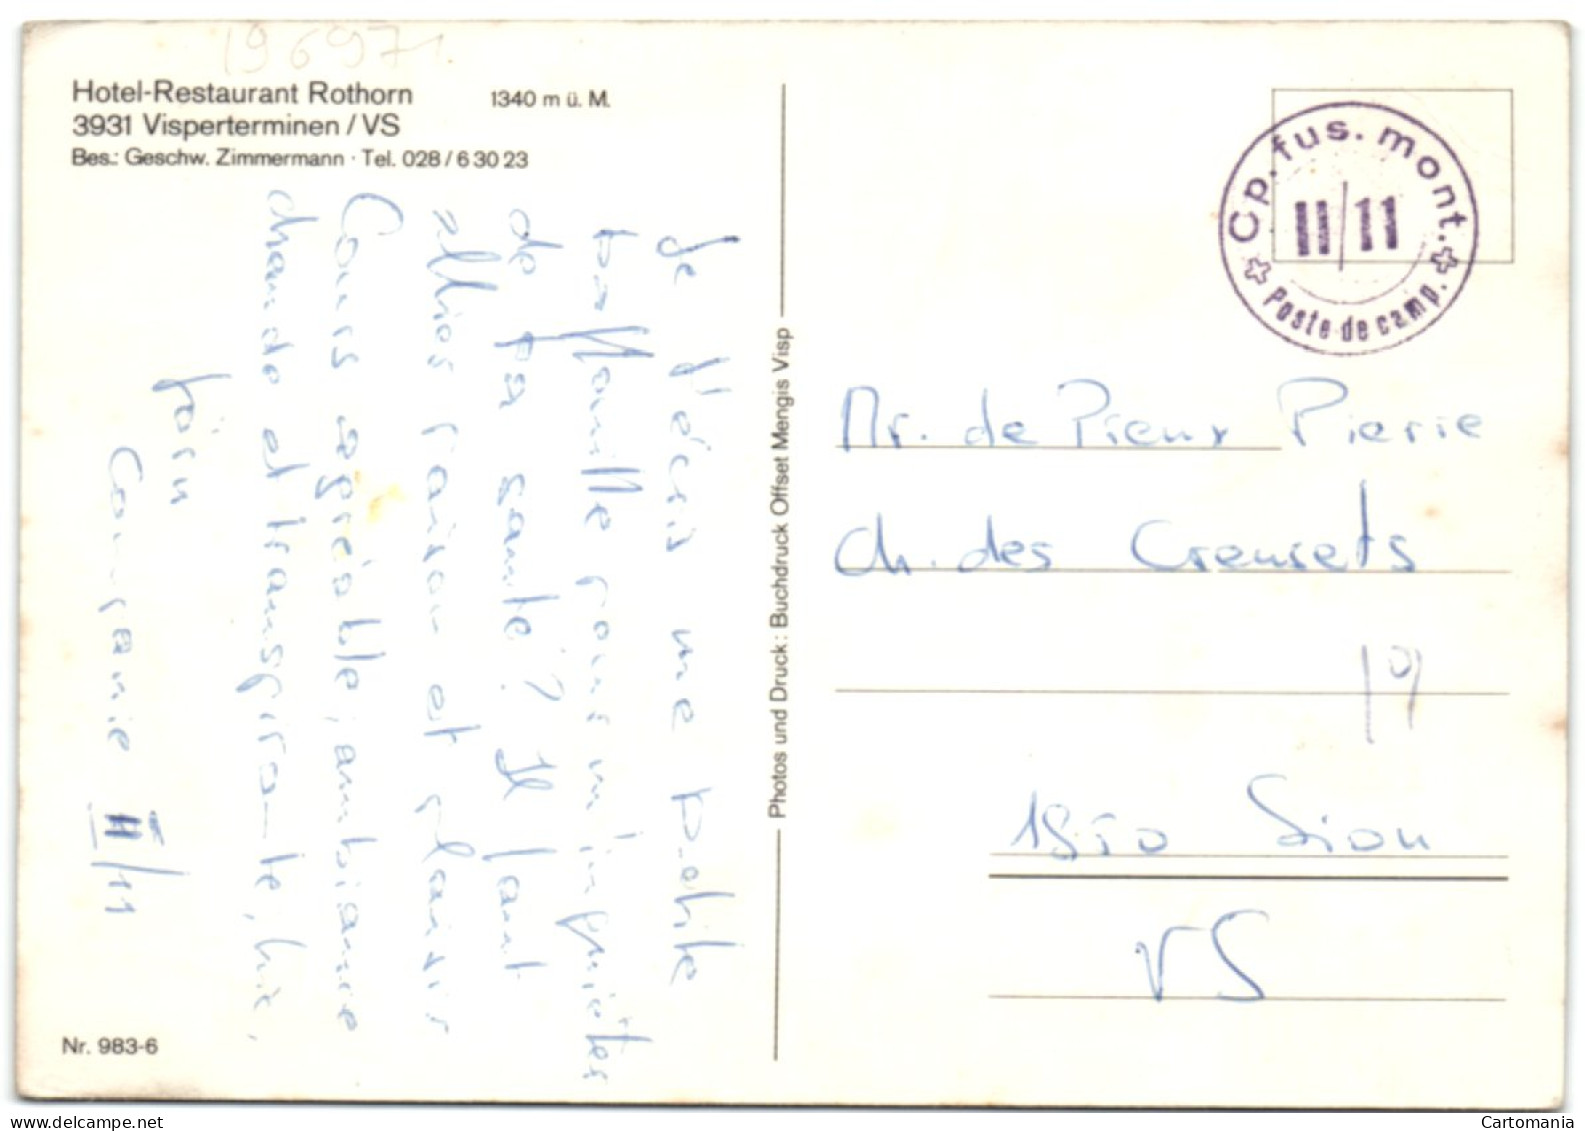 196971
Hotel-Restaurant Rothorn 1340 m ü. M.
3931 Visperterminen / VS
Bes.: Geschw. Zimmermann · Tel. 028 / 6 30 23
Je t'écris une petite
baffouille pour m'inquiéter
de ta santé? Il faut
allier raison et plaisir
Cours agréable, ambiance
chaude et transpirante, hic,
Compagnie II/11
Nr. 983-6
Photos und Druck: Buchdruck Offset Mengis Visp
Cp. fus. mont.
II/11
Poste de camp.
Mr. de Preux Pierre
ch. des Creusets
19
1950 Sion
VS
Cartomania